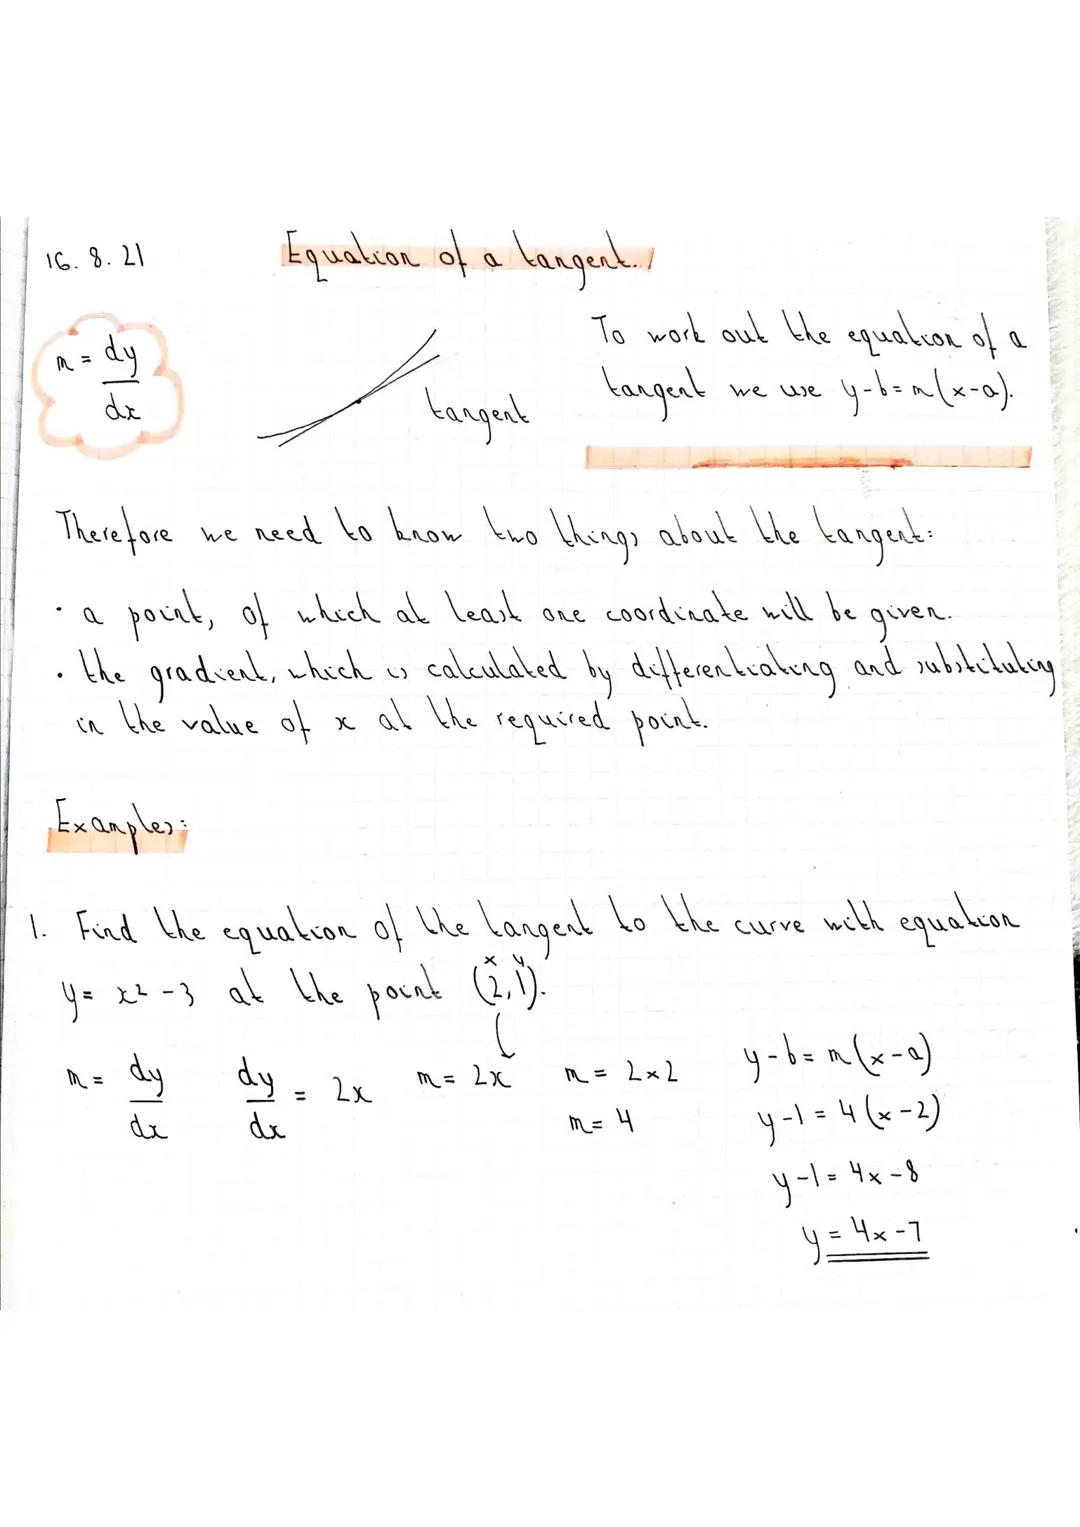 16.8.21
Equation of a tangent.
m = dy/dx
tangent
To work out the equation of a
tangent we use y-b=m(x-a).
Therefore we need to know two things about the tangent:
· a point, of which at least one coordinate will be given.
· the gradient, which is calculated by differentiating and substituting
in the value of x at the required point.
Examples:
1. Find the equation of the tangent to the curve with equation
x y
y= x²-3 at the point (2,1).
m = dy/dx dy/dx = 2x m= 2x m = 2×2
m= 4
y-b= m(x-a)
y-1 = 4(x-2)
y-1= 4x-8
y = 4x-7